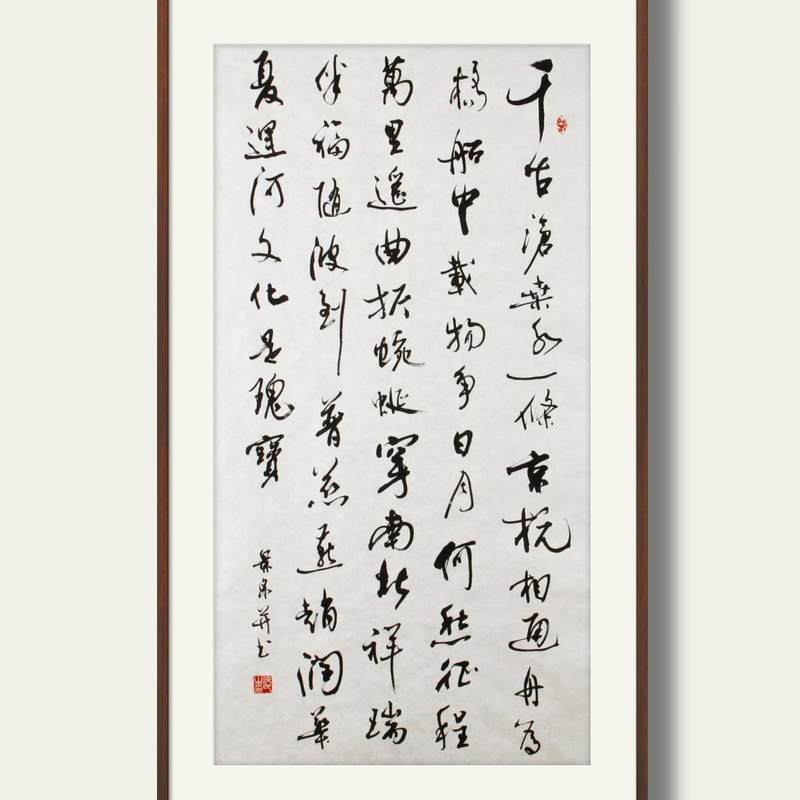 千古滄桑水一條京杭相通舟為
橋船中載物爭日月何愁征程
萬里遥曲折蜿蜒穿南北祥瑞
伴福随波到普燕趙潤華
夏運河文化是瑰寶
景泉并书